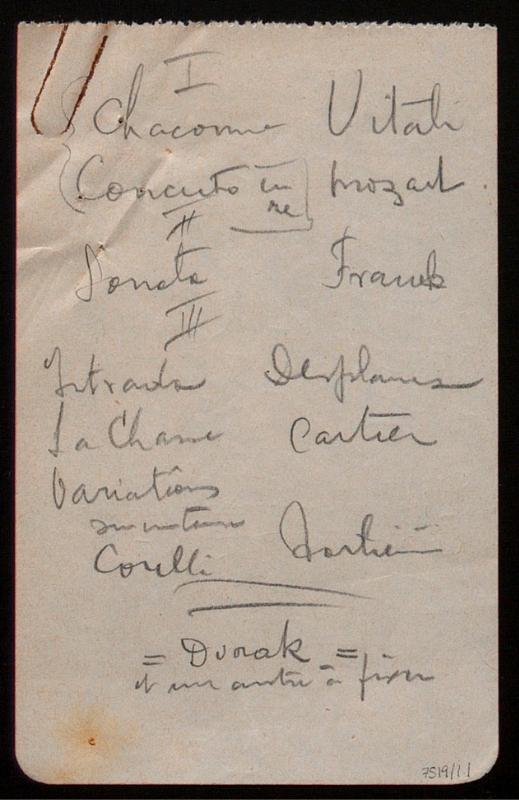 I
Chaconne Vitali
Concerto en ré Mozart
II
Sonate Franck
III
Intrada Desplanes
La Chasse Cartier
Variations
sur un thème
Corelli Tartini
= Dvorak =
et un autre à fixer
7519/11